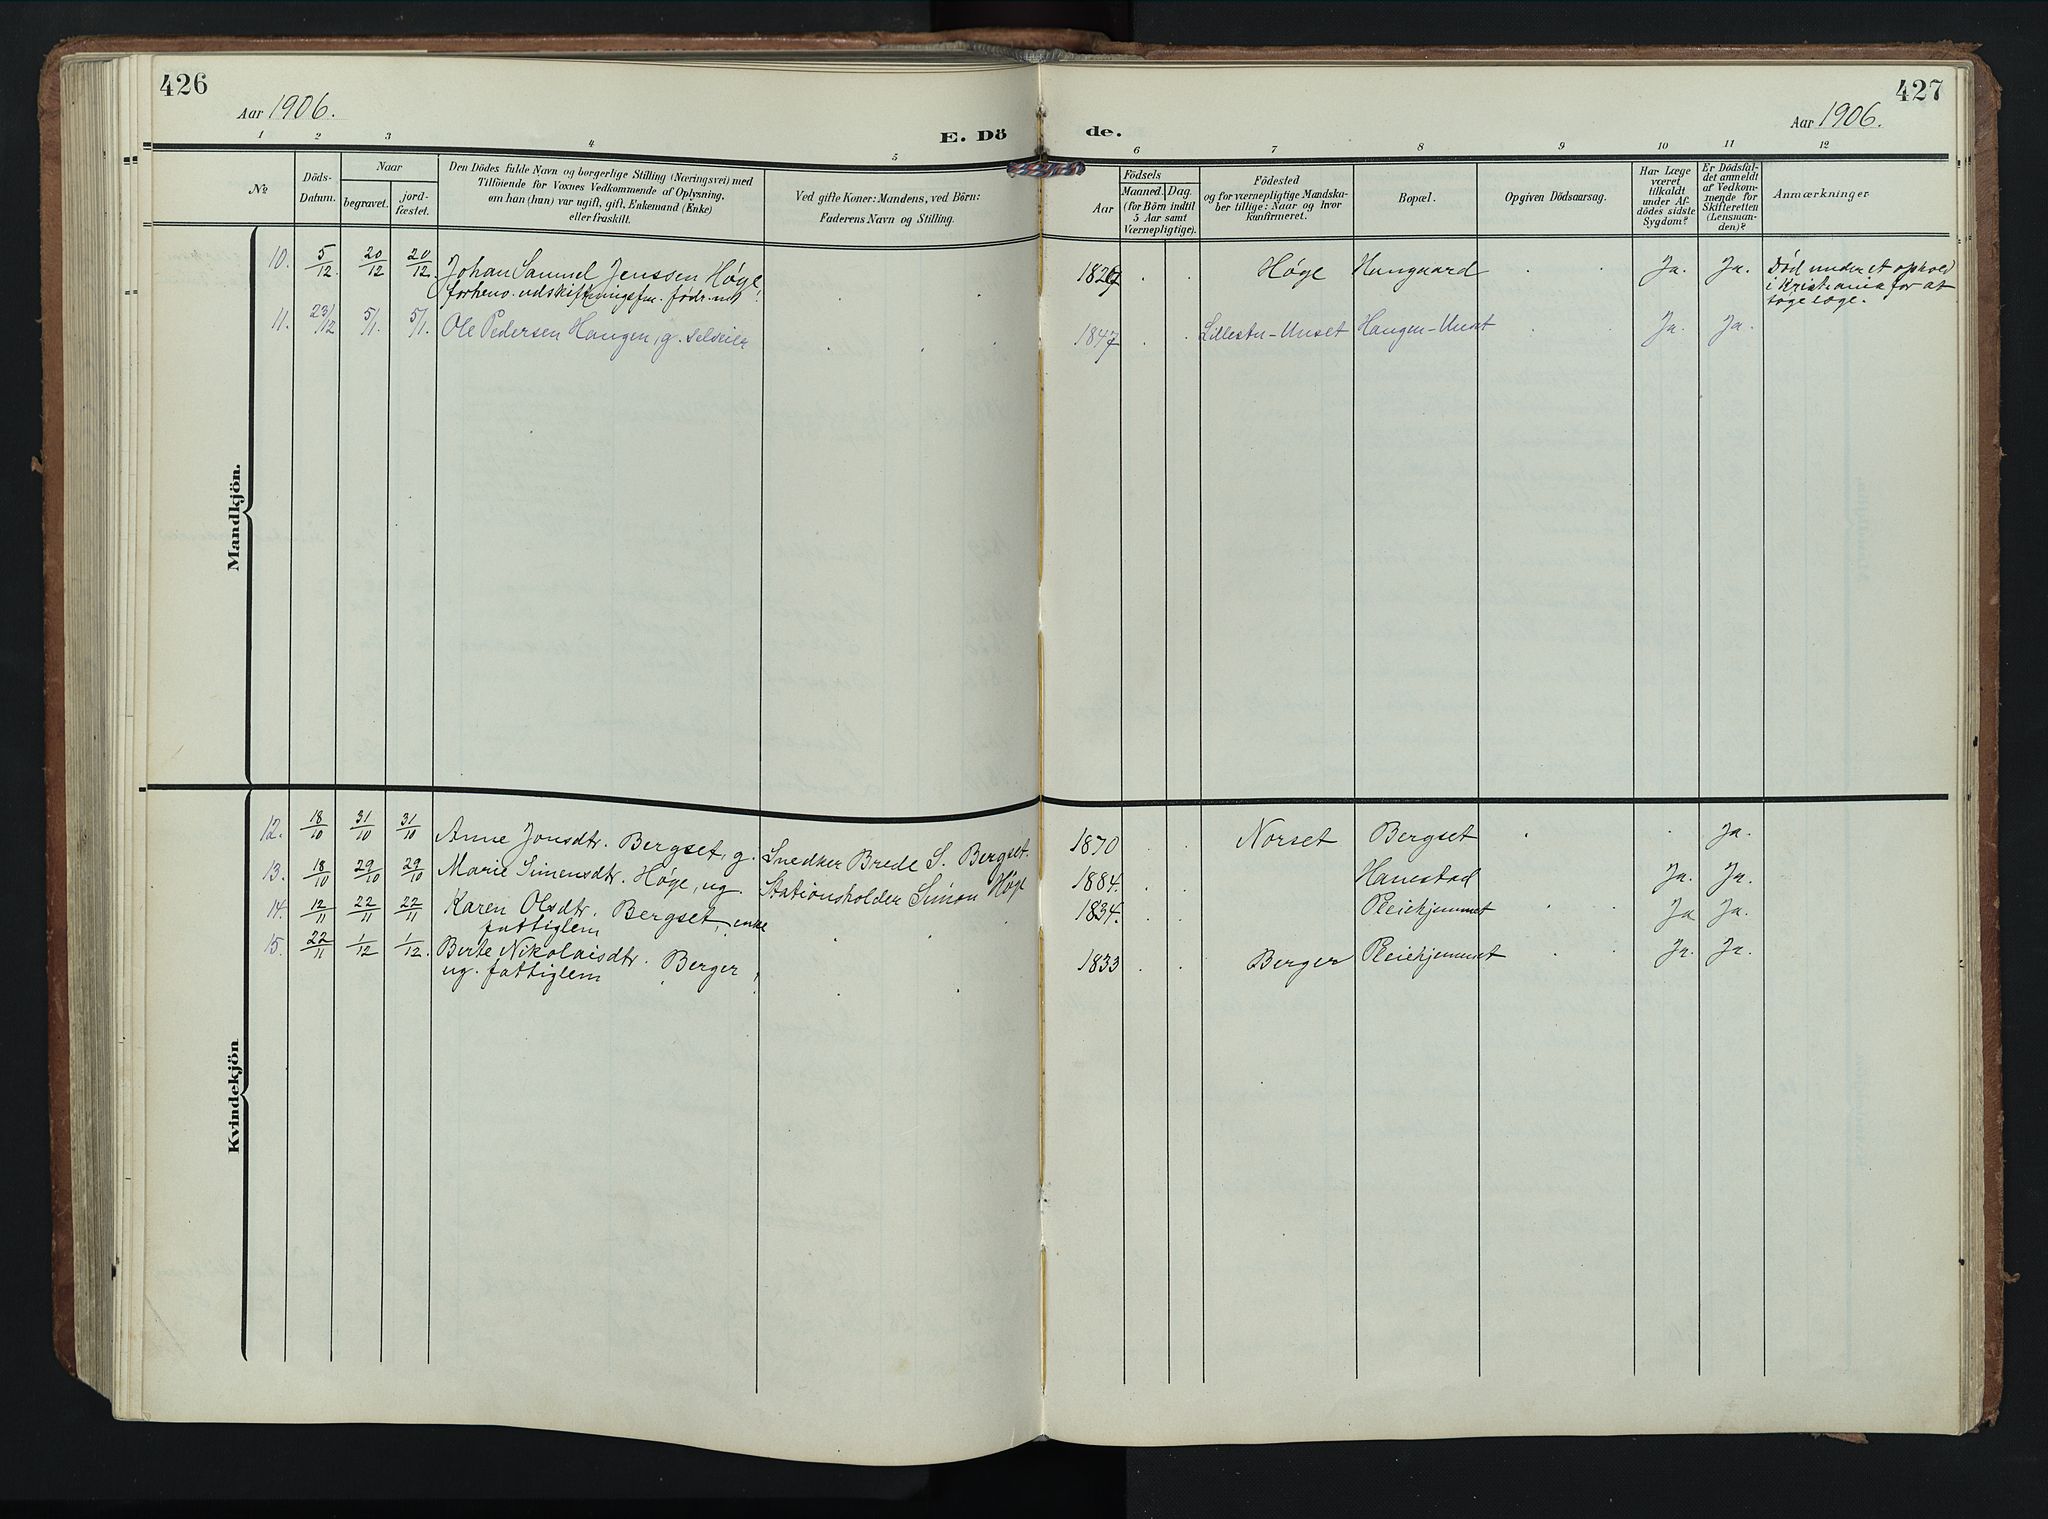 426
Aar 1906.
E. Dö
de.
427
Aar 1906.
1 2 3 4 5 6 7 8 9 10 11 12
No
Döds-
Datum.
Naar
begravet.
jord-
fæstet.
Den Dödes fulde Navn og borgerlige Stilling (Næringsvei) med
Tilföiende for Voxnes Vedkommende af Oplysning,
om han (hun) var ugift, gift, Enkemand (Enke)
eller fraskilt.
Ved gifte Koner: Mandens, ved Börn:
Faderens Navn og Stilling.
Födsels
Aar
Maaned. Dag.
(for Börn indtil
5 Aar samt
Værnepligtige).
Födested
og for værnepligtige Mandska-
ber tillige: Naar og hvor
konfirmeret.
Bopæl.
Opgiven Dödsaarsag.
Har Læge
været
tilkaldt
under Af-
dödes sidste
Sygdom?
Er Dödsfal-
det anmeldt
af Vedkom-
mende for
Skifteretten
(Lensman-
den)?
Anmærkninger.
Mandkjön.
10. 5/12. 20/12 20/12. Johan Samuel Jenssen Høge
forhenv. udskiftningsfm.
Høge Ja. Ja. Død under et ophold
i Kristiania for at
søge læge.
11. 23/12 5/1. 5/1. Ole Pedersen Haugen, g. selveier 1847 Lillestu-Unset Haugen-Unset Ja. Ja.
Kvindekjön
12. 18/10 31/10 31/10 Anne Jonsdtr. Bergset, g. Snedker Brede S. Bergset. 1870 Norset Bergset Ja.
13. 18/10 29/10 29/10 Marie Simensdtr. Høge, ug. Stationsholder Simon Høge 1884. Hanestad Ja. Ja.
14. 12/11 22/11 22/11 Karen Olsdtr. Bergset, enke
fattiglem 1834. Pleiehjemmet Ja Ja.
15. 22/11 1/12 1/12. Berte Nikolaisdtr. Berger,
ug. fattiglem 1833 Berger Pleiehjemmet Ja. Ja.